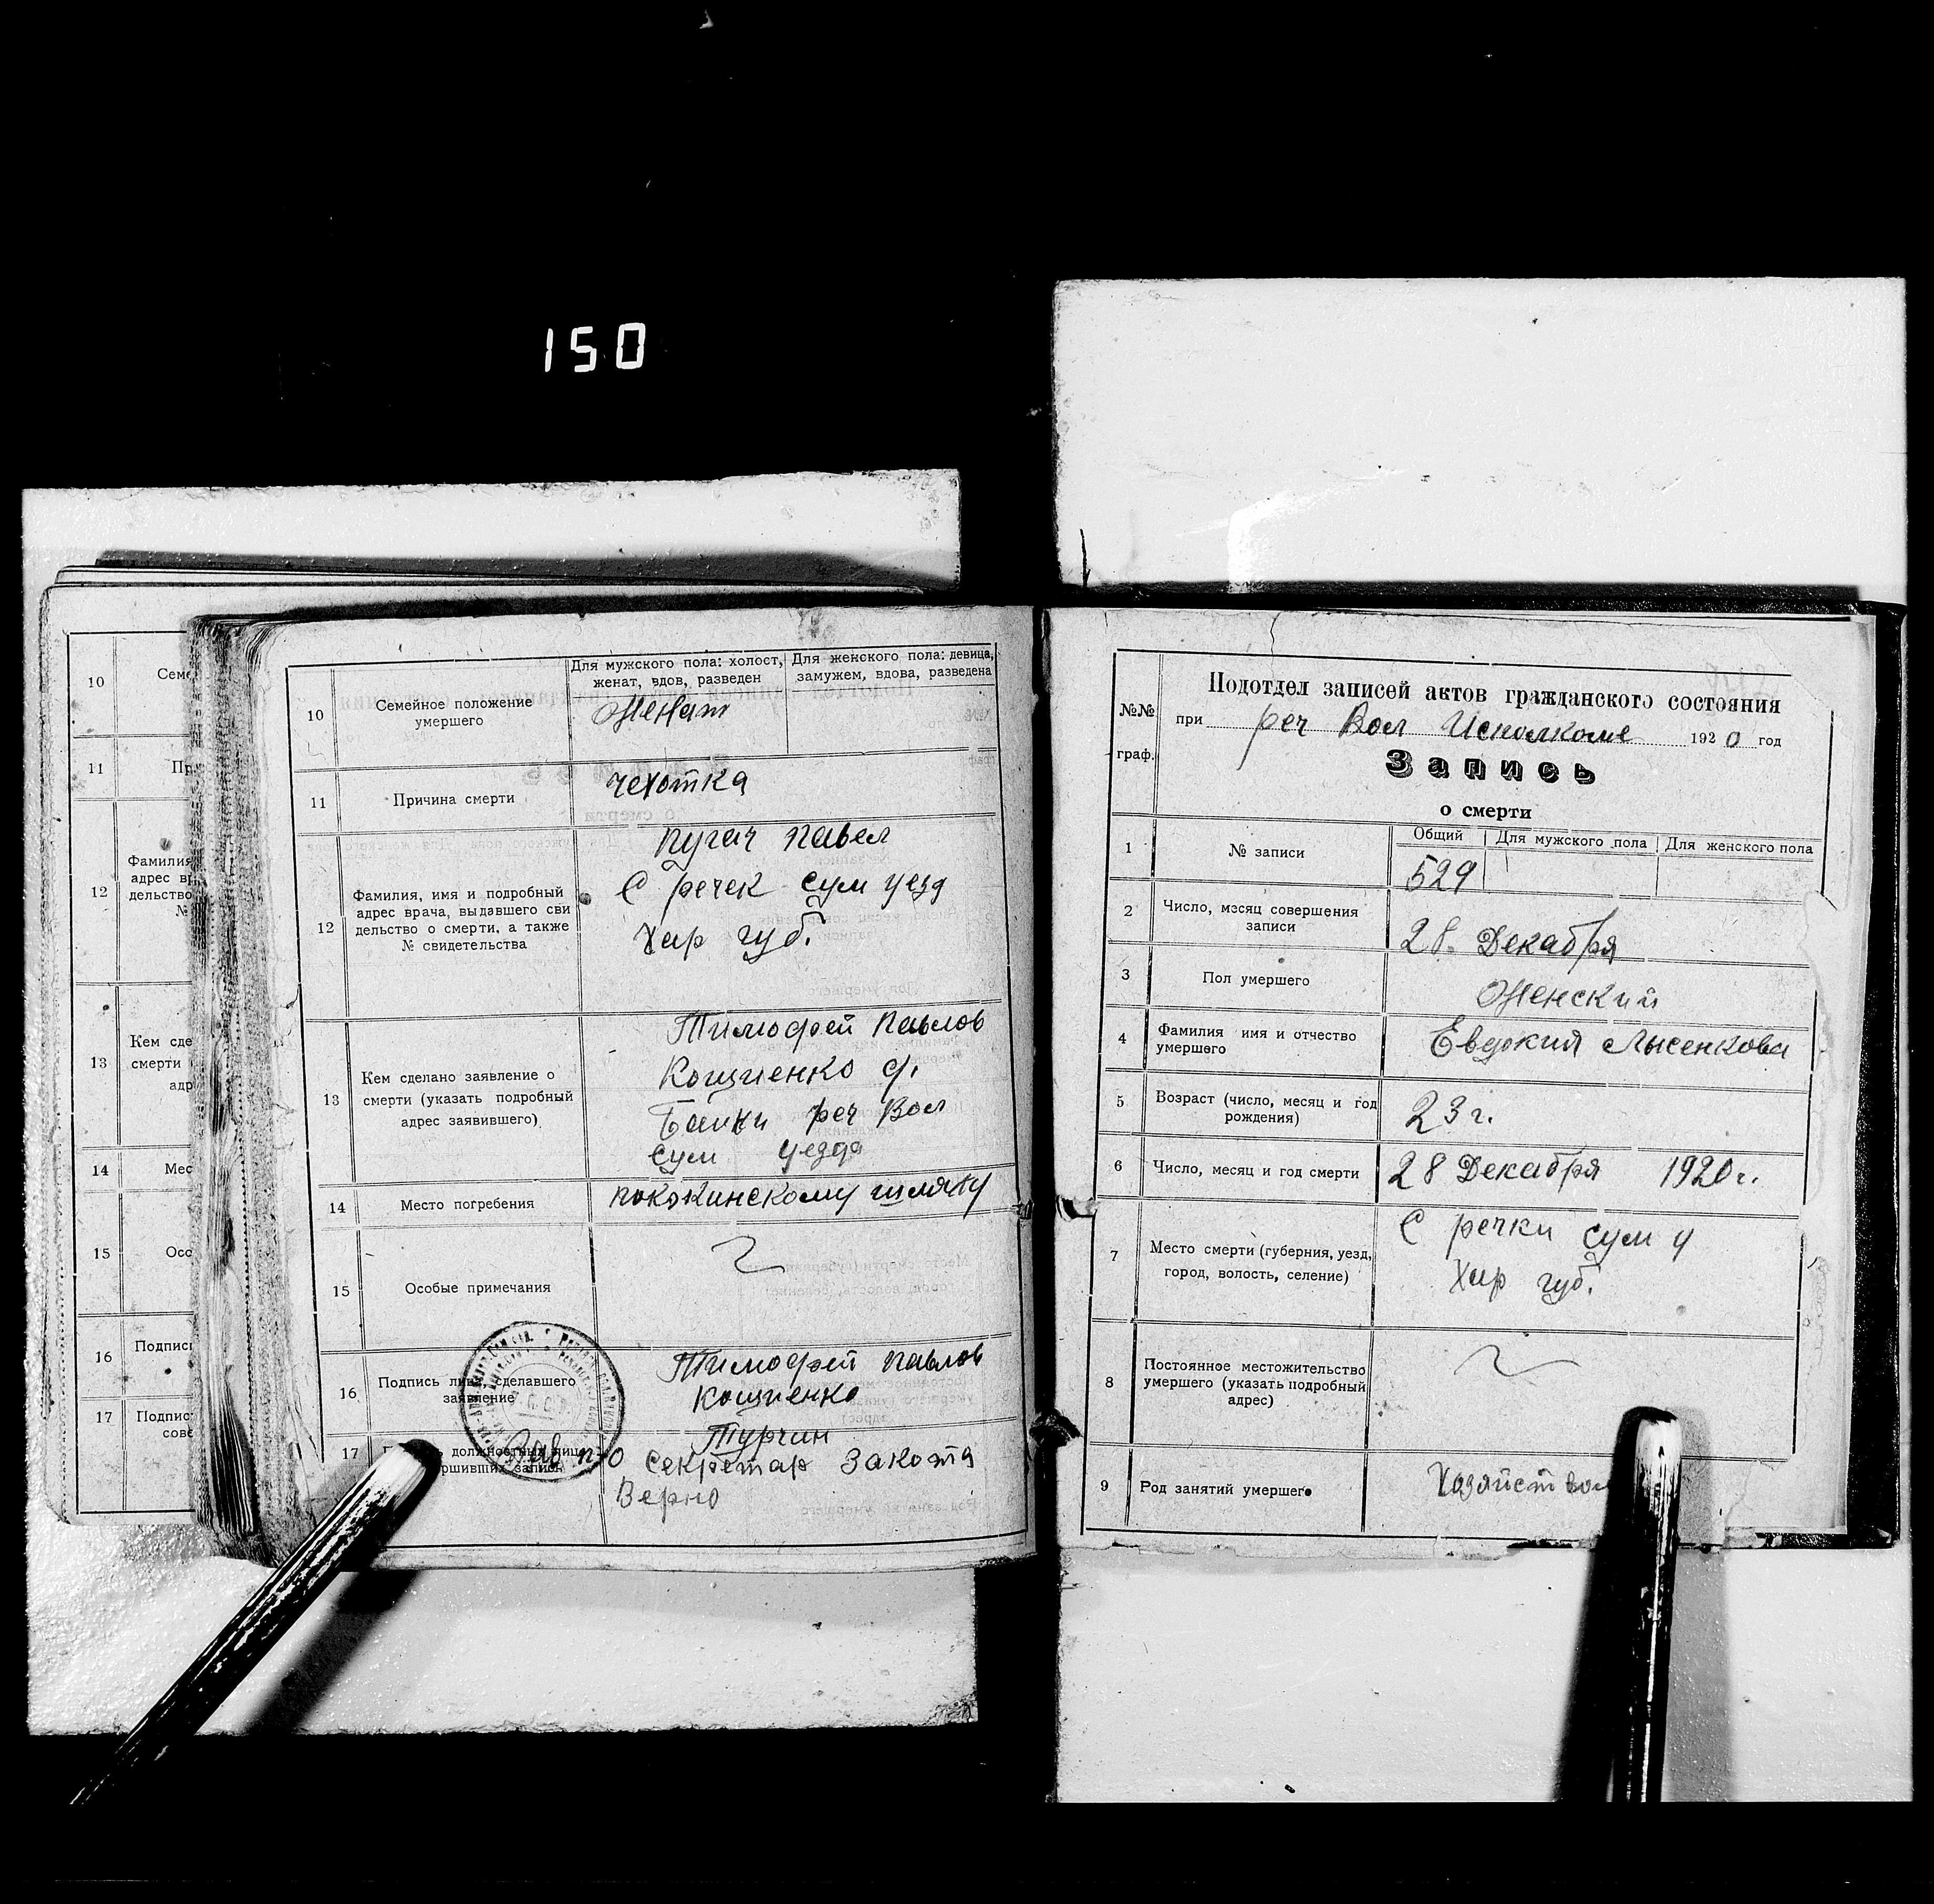 150
10
Семе
11
Пр
12
Фамилия
адрес в
дельство
№
13
Кем сде
смерти
адр
14
Мес
15
Осо
16
Подпис
17
Подпис
сове
10
Семейное положение
умершего
Для мужского пола: холост,
женат, вдов, разведен
Для женского пола: девица,
замужем, вдова, разведена
Женат
11
Причина смерти
Чехотка
12
Фамилия, имя и подробный
адрес врача, выдавшего сви
дельство о смерти, а также
№ свидетельства
Пугач Павел
С речек сум уезд
Хар губ.
13
Кем сделано заявление о
смерти (указать подробный
адрес заявившего)
Тимофей Павлов
д.
реч Вол
сум уезда
14
Место погребения
шляху
15
Особые примечания
16
Подпись лица, сделавшего
заявление
Тимофей Павлов
17
должностных лиц
ршивших запись
Зав п/о
Турчин
Секретар
Верно
№№
граф.
Подотдел записей актов гражданского состояния
при реч Вол Исполкоме 1920 год
Запись
о смерти
1
№ записи
Общий
Для мужского пола
Для женского пола
529
2
Число, месяц совершения
записи
28 Декабря
3
Пол умершего
Женский
4
Фамилия имя и отчество
умершего
Евдокия Лысенкова
5
Возраст (число, месяц и год
рождения)
23 г.
6
Число, месяц и год смерти
28 Декабря 1920 г.
7
Место смерти (губерния, уезд,
город, волость, селение)
С речки сум у
Хар губ.
8
Постоянное местожительство
умершего (указать подробный
адрес)
9
Род занятий умершего
Хозяйствов